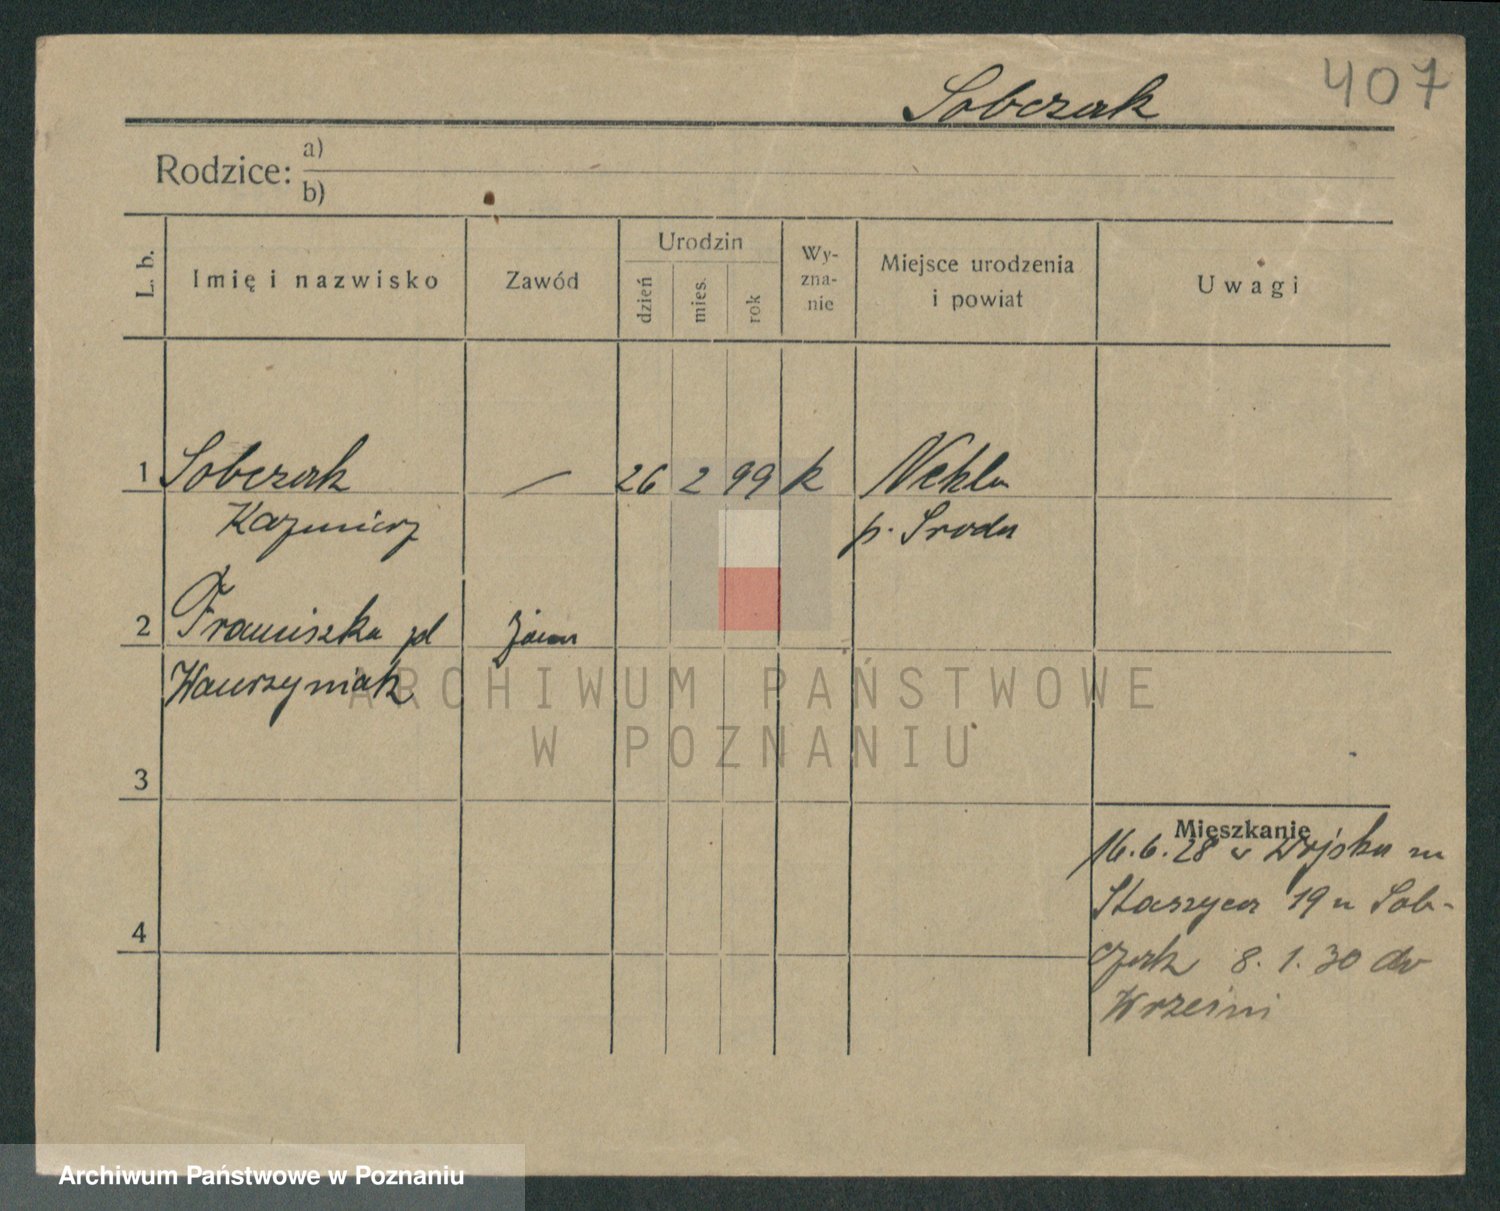 407
Sobczak
Rodzice: a)
b)
L. b.
Imię i nazwisko
Zawód
Urodzin
dzień
mies.
rok
Wy-
zna-
nie
Miejsce urodzenia
i powiat
Uwagi
1 Sobczak — 26 2 99 k Nekla
Kazimierz p. Sroda
2 Franciszka zd
Wawrzyniak
3
Mieszkanie
16.6.28 w Wojsku
Staszyca 19 u Sob-
4
czak 8.1.30 do
Wrzesni
ARCHIWUM PAŃSTWOWE
W POZNANIU
Archiwum Państwowe w Poznaniu